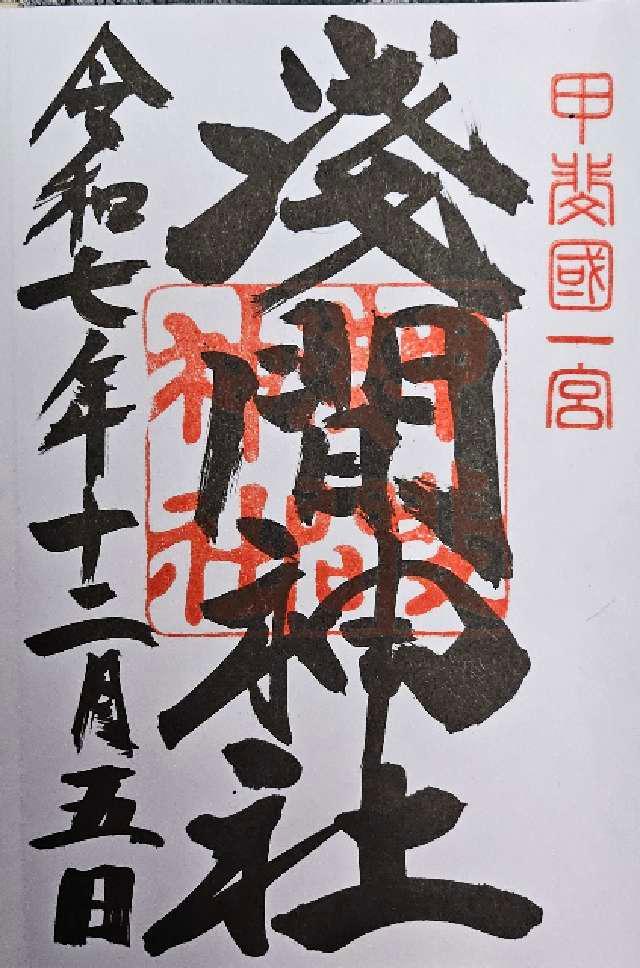 甲斐國一宮
淺間神社
令和七年十二月五日